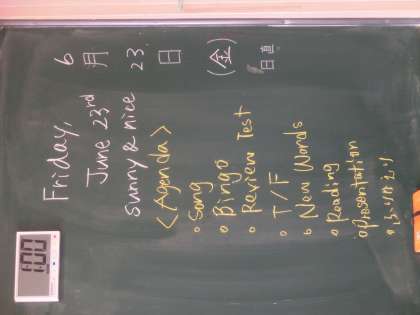 Friday,
June 23rd
sunny & nice
<Agenda>
• Song
• Bingo
• Review Test
• T/F
• New Words
• Reading
• Presentation
• ふりかえり
6月23日(金)
日直
1:00